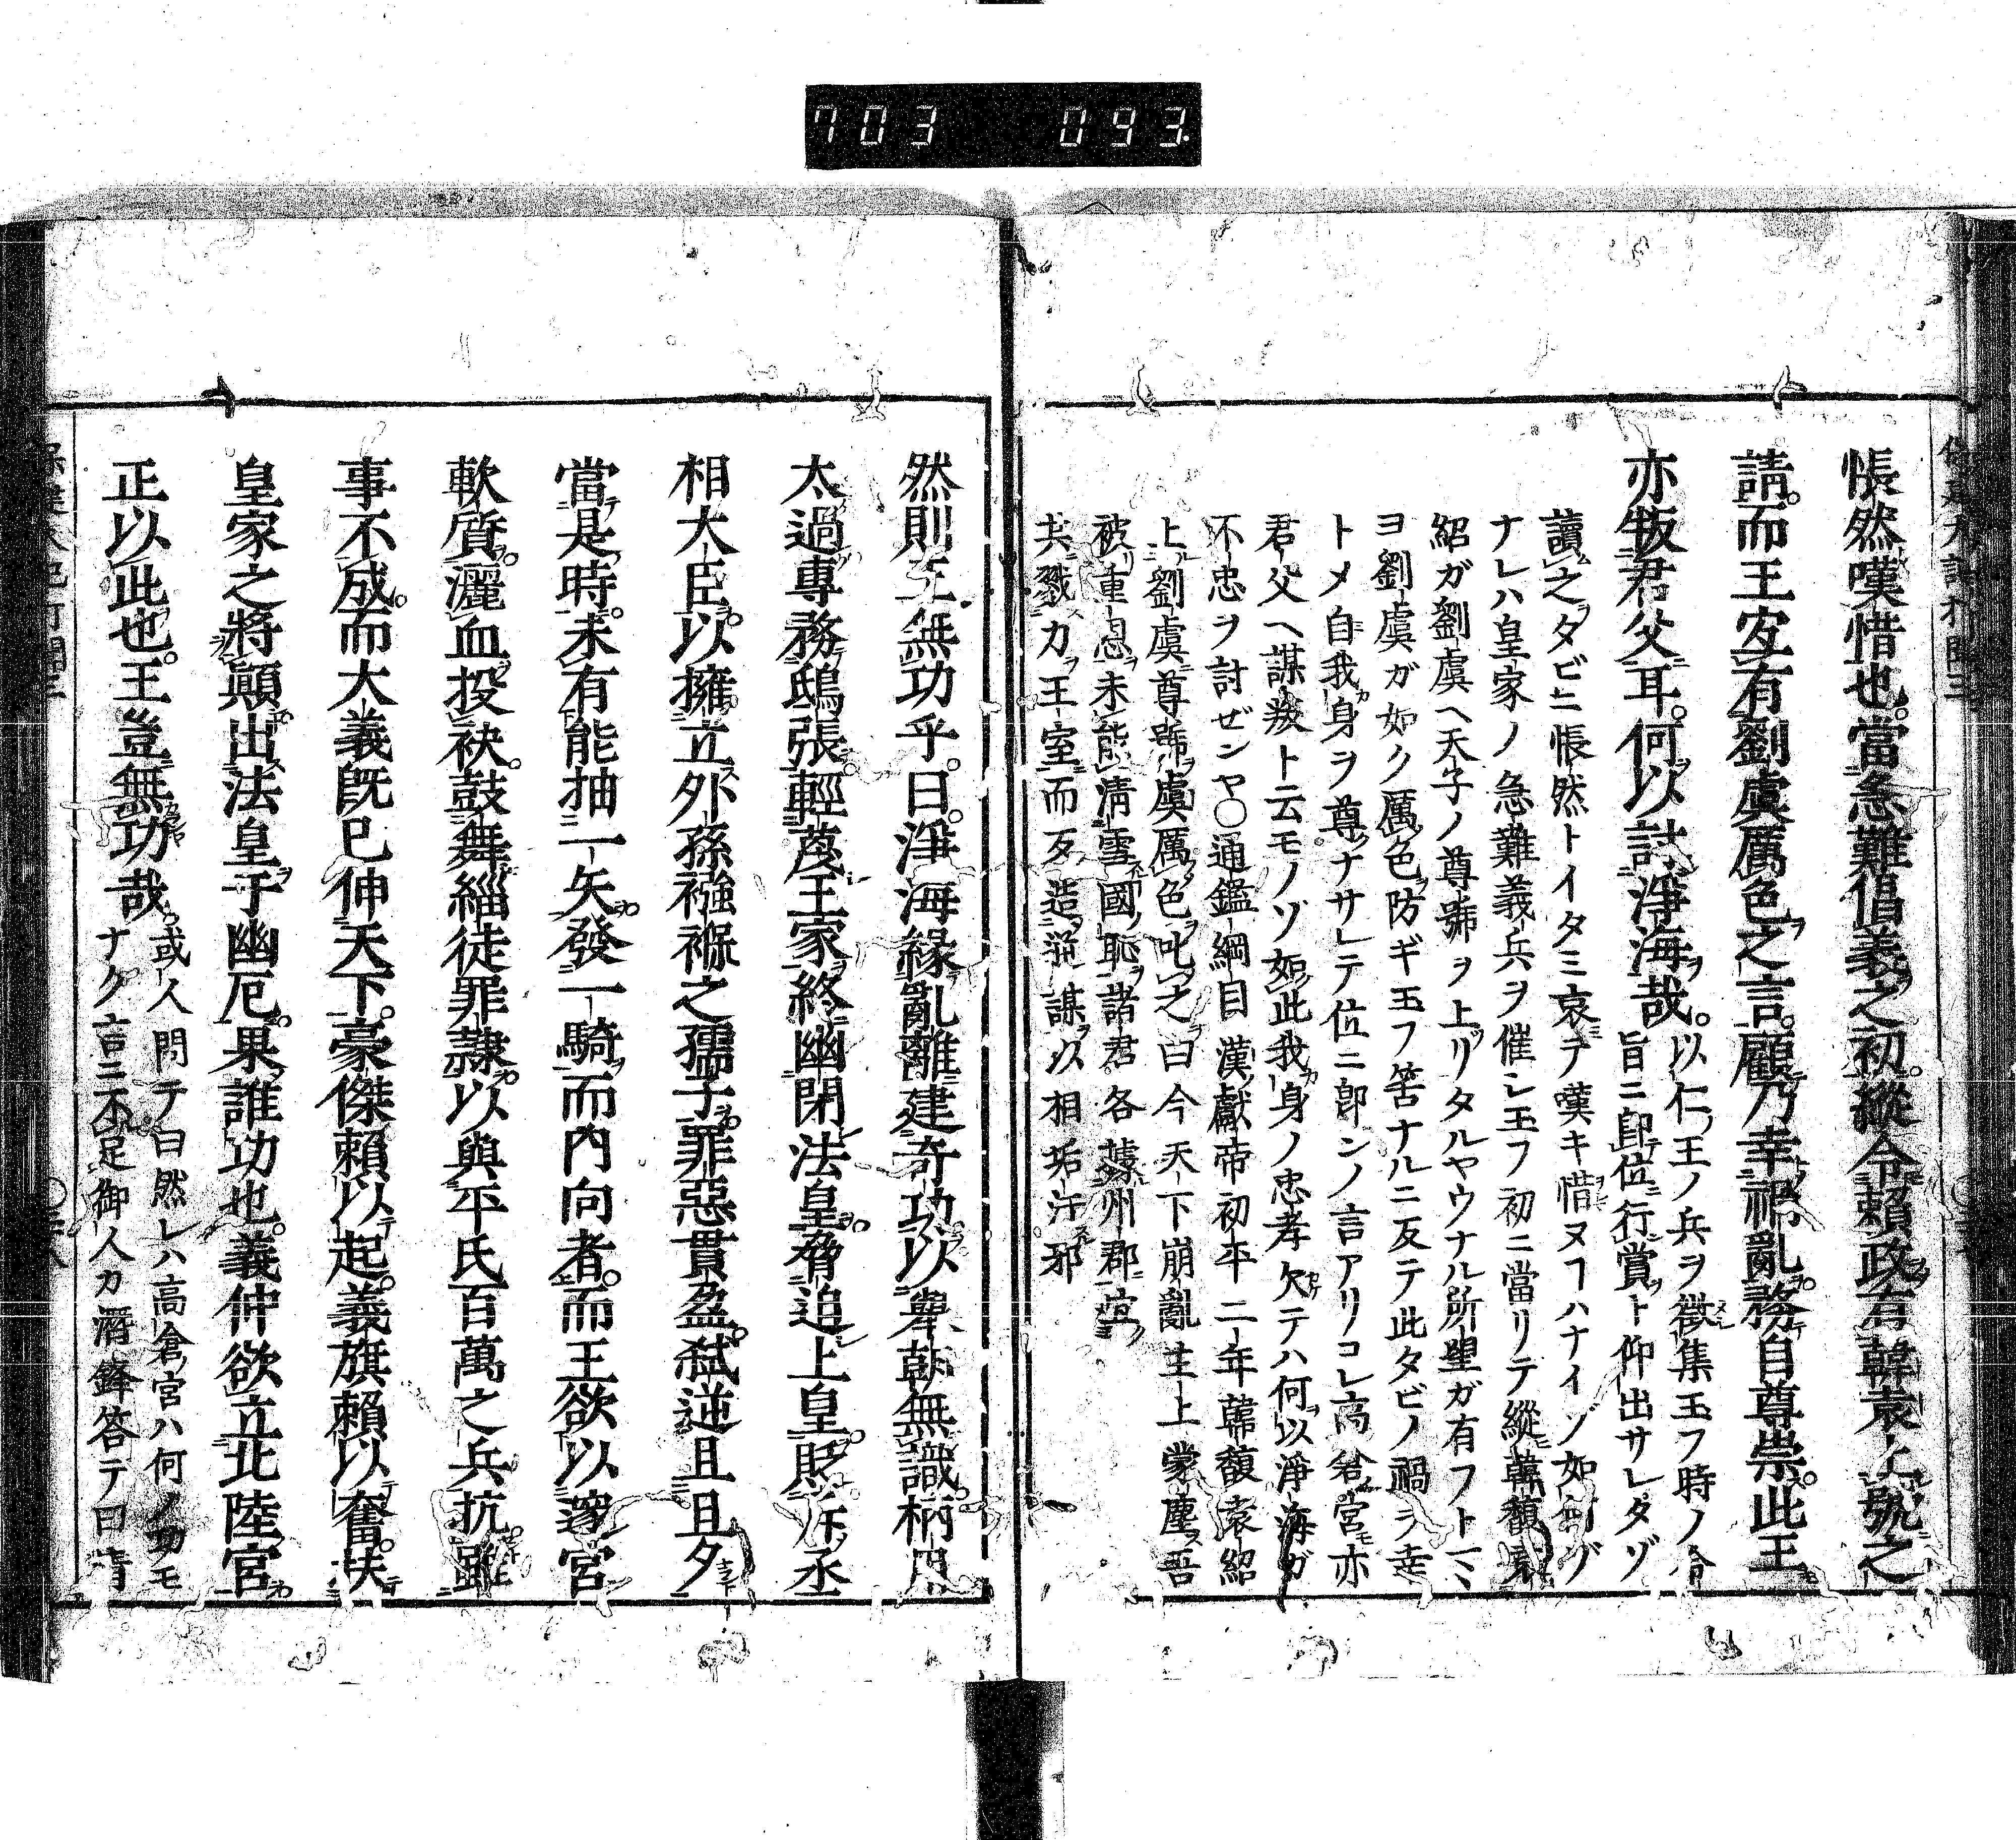 703 093
悵然嘆惜也。當急難倡義之初。縱令頼政有韓袁上號之
請。而王安有劉虞厲色之言。顧乃幸禍乱務自尊崇。此王
亦叛君父耳。何以討淨海哉。以仁王ノ兵ヲ徴集玉フ時ノ令
旨ニ即位行賞ト仰出サレタゾ
讀之タビニ悵然トイタミ哀テ嘆キ惜ヌヿハナイゾ如何ゾ
ナレハ皇家ノ急難義兵ヲ催シ玉フ初ニ當リテ縱韓馥袁
紹ガ劉虞ヘ天子ノ尊號ヲ上リタルヤウナル所望ガ有フトママ
ヨ劉虞ガ如ク厲色防ギ玉フ筈ナルニ反テ此タビノ禍ヲ幸
トメ自我身ヲ尊ナサレテ位ニ即ンノ言アリコレ高倉宮モ亦
君父ヘ謀叛ト云モノゾ如此我身ノ忠孝欠テハ何以淨海ガ
不忠ヲ討ゼンヤ○通鑑綱目漢獻帝初平二年韓馥袁紹
上劉虞尊號虞厲色叱之曰今天下崩亂主上蒙塵吾
被重恩未能清雪國恥諸君各據州郡宜
共戮力王室而反造逆謀以相垢汙邪
然則王無功乎。曰。淨海緣亂離建奇功。以擧朝無識柄用
太過專務鴟張。輕蔑王家終幽閉法皇脅追上皇。貶斥丞
相大臣。以擁立外孫襁褓之孺子罪惡貫盈。弑逆且且夕
當是時。未有能抽一矢發一騎而內向者。而王欲以邃宮
軟質。灑血投袂。鼓舞緇徒罪隷。以與平氏百萬之兵抗。雖
事不成。而大義既已伸天下。豪傑賴以起。義旗賴以奮。扶
皇家之將顚。出法皇于幽厄。果誰功也。義仲欲立北陸宮
正以此也。王豈無功哉。或人問テ曰然レハ高倉宮ハ何ノ功モ
ナク言ニ不足御人カ潛鋒答テ曰淸